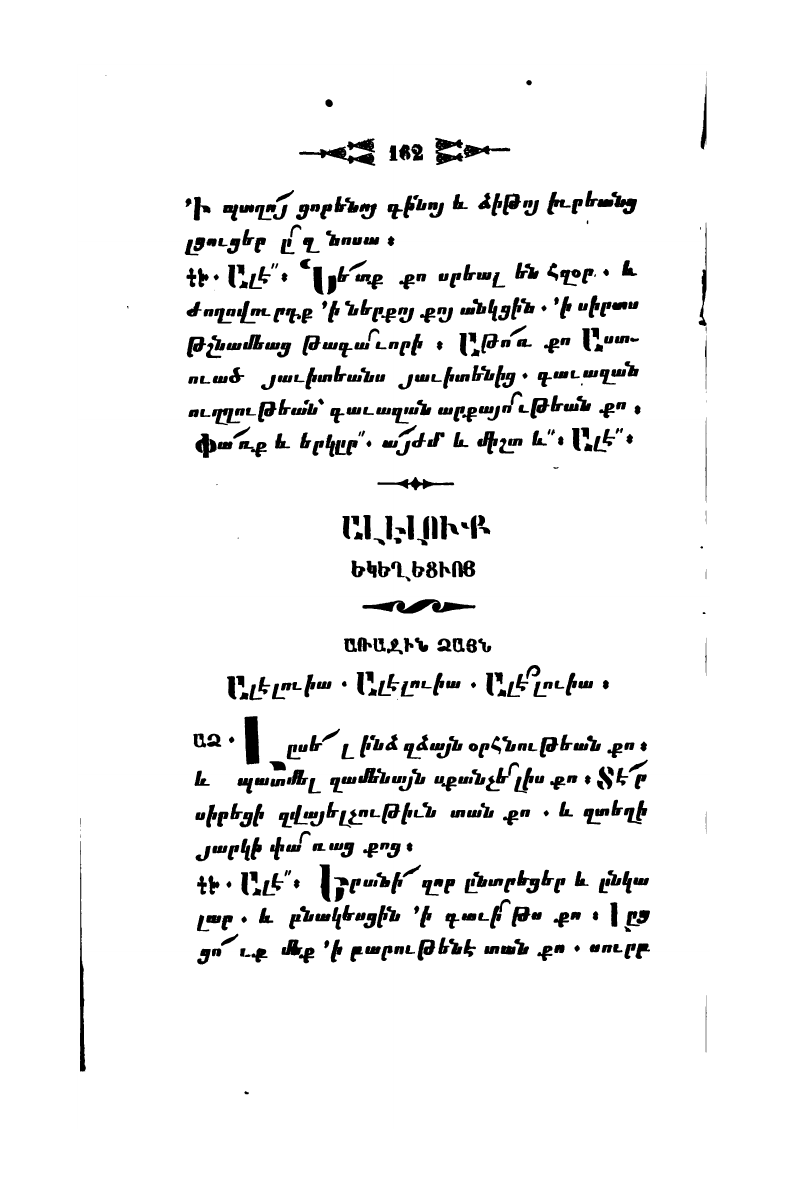 162
՚Ի պտղո՜յ ցորենոյ գինոյ և ձիթոյ իւրեանց
լցուցեր ըՀզ նոսա ։
ԿԻ · Ալէ՛՛։ Նե՜տք քո սրեալ են Հզօր · և
ժողովուրդք ՚ի ներքոյ քոյ անկցին · ՚ի սիրտս
թշնամեաց թագաւորի ։ Աթո՜ռ քո Աստ-
ուած յաւիտեանս յաւիտենից · գաւազան
ուղղութեան՝ գաւազան արքայութեան քո ։
Փա՜ռք և երկըր՛՛· ա՜յժմ և միշտ և՛՛։ Ալէ՛՛։
ԱԼԷԼՈՒՔ
ԵԿԵՂԵՑՒՈՑ
ԱՌԱՋԻՆ ՁԱՅՆ
Ալէլուիա · Ալէլուիա · Ալէլուիա ։
ԱՁ · Լըսե՜լ ինձ զձայն օրհնութեան քո ։
և պատմել զամենայն սքանչելիս քո ։ Տէ՜ր
սիրեցի զվայելչութիւն տան քո · և զտեղի
յարկի փառաց քոց ։
ԿԻ · Ալէ՛՛։ Երանի՜ զոր ընտրեցեր և ընկա
լար · և բնակեսցին ՚ի գաւիթս քո ։ Լըց
ցո՜ւք մեք ՚ի բարութենէ տան քո · սուրբ